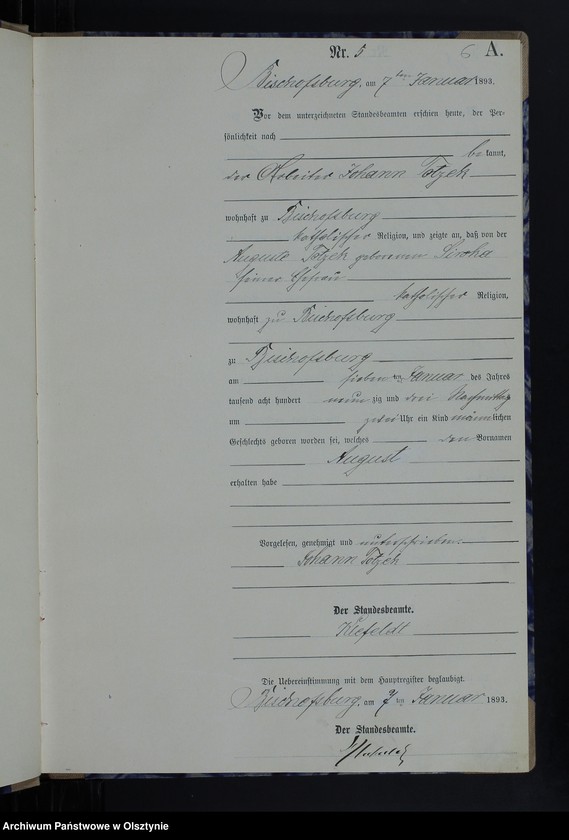 Nr. 5
6 A.
Bischofsburg, am 7 ten Januar 1893.
Vor dem unterzeichneten Standesbeamten erschien heute, der Per-
sönlichkeit nach
be kannt,
der Arbeiter Johann Totzek
wohnhaft zu Bischofsburg
katholischer Religion, und zeigte an, daß von der
Auguste Totzek geborenen Siroka
seiner Ehefrau
katholischer Religion,
wohnhaft zu Bischofsburg
zu Bischofsburg
am sieben ten Januar des Jahres
tausend acht hundert neun zig und drei Nachmittags
um zwei Uhr ein Kind männlichen
Geschlechts geboren worden sei, welches den Vornamen
August
erhalten habe
Vorgelesen, genehmigt und unterschrieben
Johann Totzek
Der Standesbeamte.
Die Uebereinstimmung mit dem Hauptregister beglaubigt.
Bischofsburg, am 7 ten Januar 1893.
Der Standesbeamte.
Archiwum Państwowe w Olsztynie